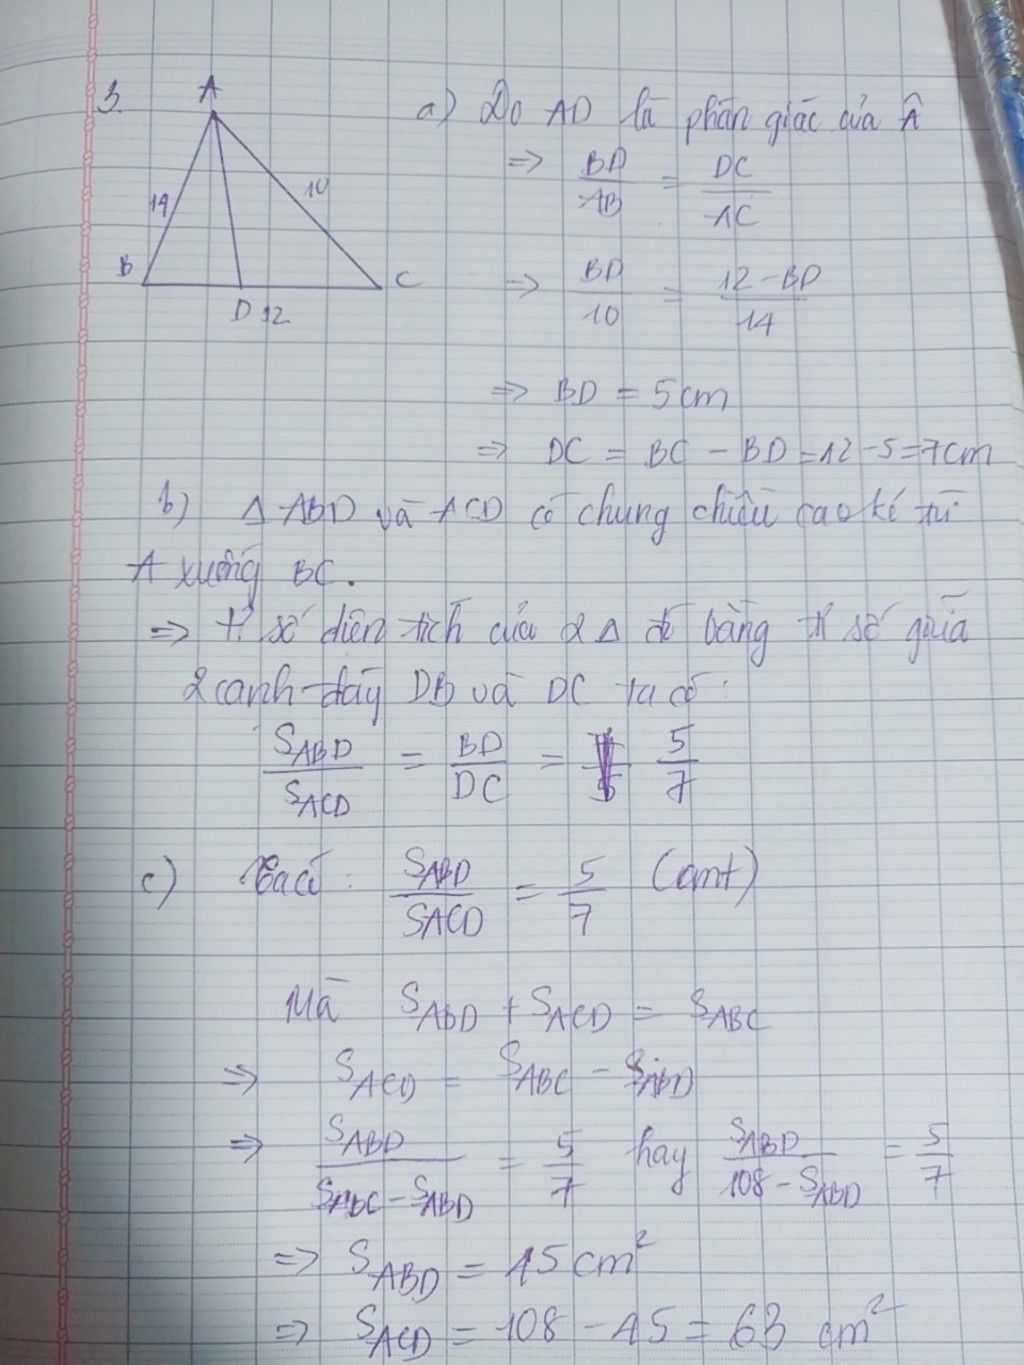 3.
A
14
10
B
D 12
C
a) Do AD là phân giác của Â
=> BD/AB = DC/AC
=> BD/10 = 12-BD/14
=> BD = 5cm
=> DC = BC - BD = 12 - 5 = 7cm
b) Δ ABD và ACD có chung chiều cao kẻ từ
A xuống BC.
=> tỉ số diện tích của 2 Δ đó bằng tỉ số giữa
2 cạnh đáy DB và DC ta có:
S_ABD/S_ACD = BD/DC = 5/7
c) Ta có: S_ABD/S_ACD = 5/7 (cmt)
Mà S_ABD + S_ACD = S_ABC
=> S_ACD = S_ABC - S_ABD
=> S_ABD/S_ABC - S_ABD = 5/7 hay S_ABD/108 - S_ABD = 5/7
=> S_ABD = 45 cm²
=> S_ACD = 108 - 45 = 63 cm²